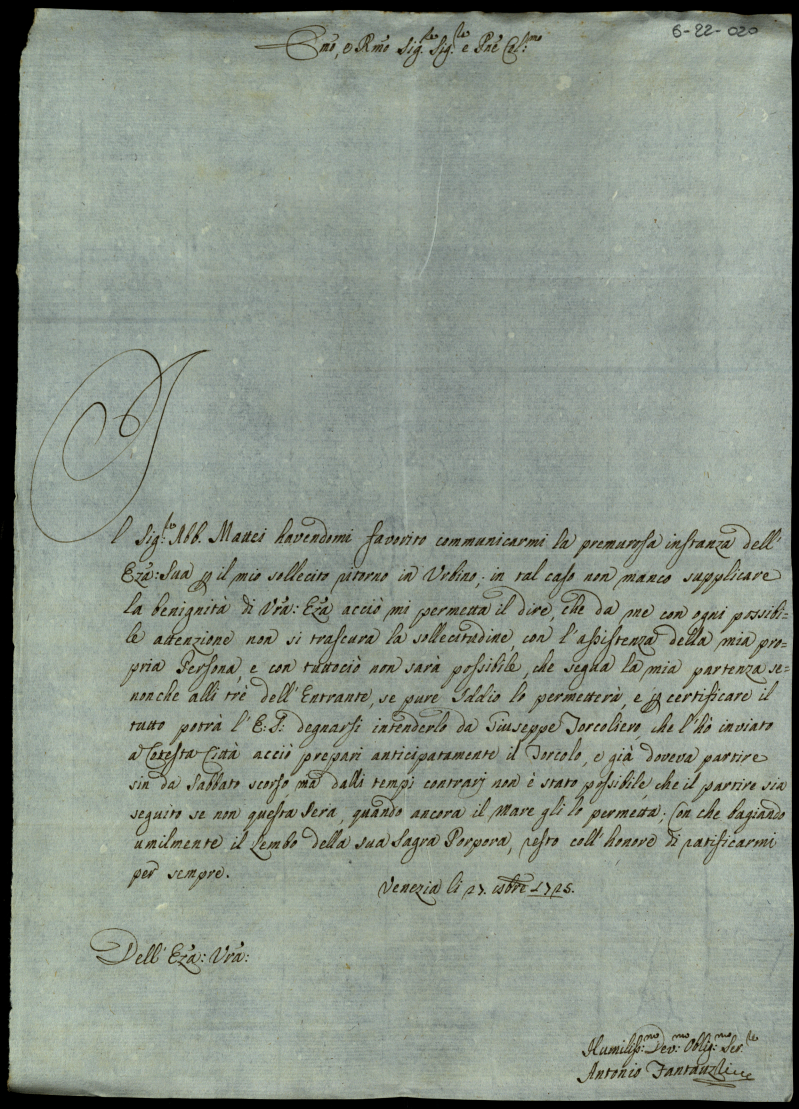 6-22-020
Emo, e Rmo Sig.re Sig.re e Pne Col:mo
Il Sig.re Abb. Maffei havendomi favorito communicarmi la premurosa instanza dell'
Eza: Sua p il mio sollecito ritorno in Urbino; in tal caso non manco supplicare
la benignità di Vrã: Ezã acciò mi permetta il dire, che da me con ogni possibi=
le attenzione non si trascura la sollecitudine, con l'assistenza della mia pro=
pria Persona, e con tuttociò non sarà possibile, che segua la mia partenza se=
nonche alli trè dell'Entrante, se pure Iddio lo permetterà, e p certificare il
tutto potrà l'E: V: degnarsi intenderlo da Giuseppe Torcoliero, che l'hò inviato
a Cotesta Città acciò prepari anticipatamente il Torcolo, e già doveva partire
sin da Sabbato scorso ma dalli tempi contrarj non è stato possibile che il partire sia
seguito se non questa sera, quando ancora il Mare gli lo permetta; Con che bagiando
umilmente il Lembo della sua Sagra Porpora, resto coll'honore di ratificarmi
per sempre.
Venezia li 27. 1725.
Dell'Ezã: Vrã:
Humiliss:mo Dev:mo Oblig:mo Ser.re
Antonio Fantauzzi